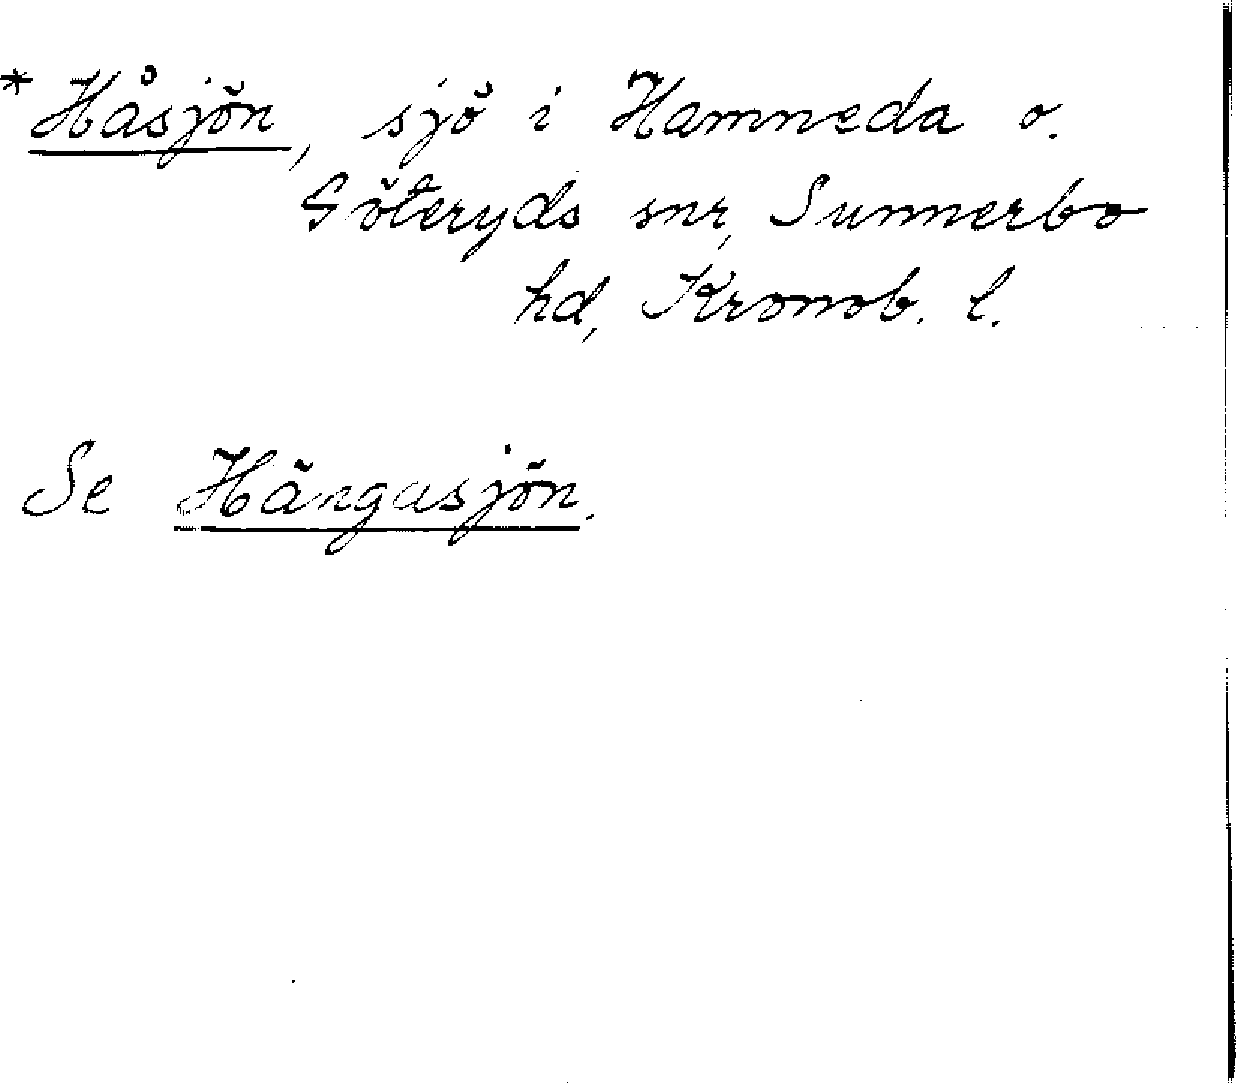 * Håsjön, sjö i Hamneda o.
Göteryds snr, Sunnerbo
hd, Kronob. l.
Se Härgasjön.